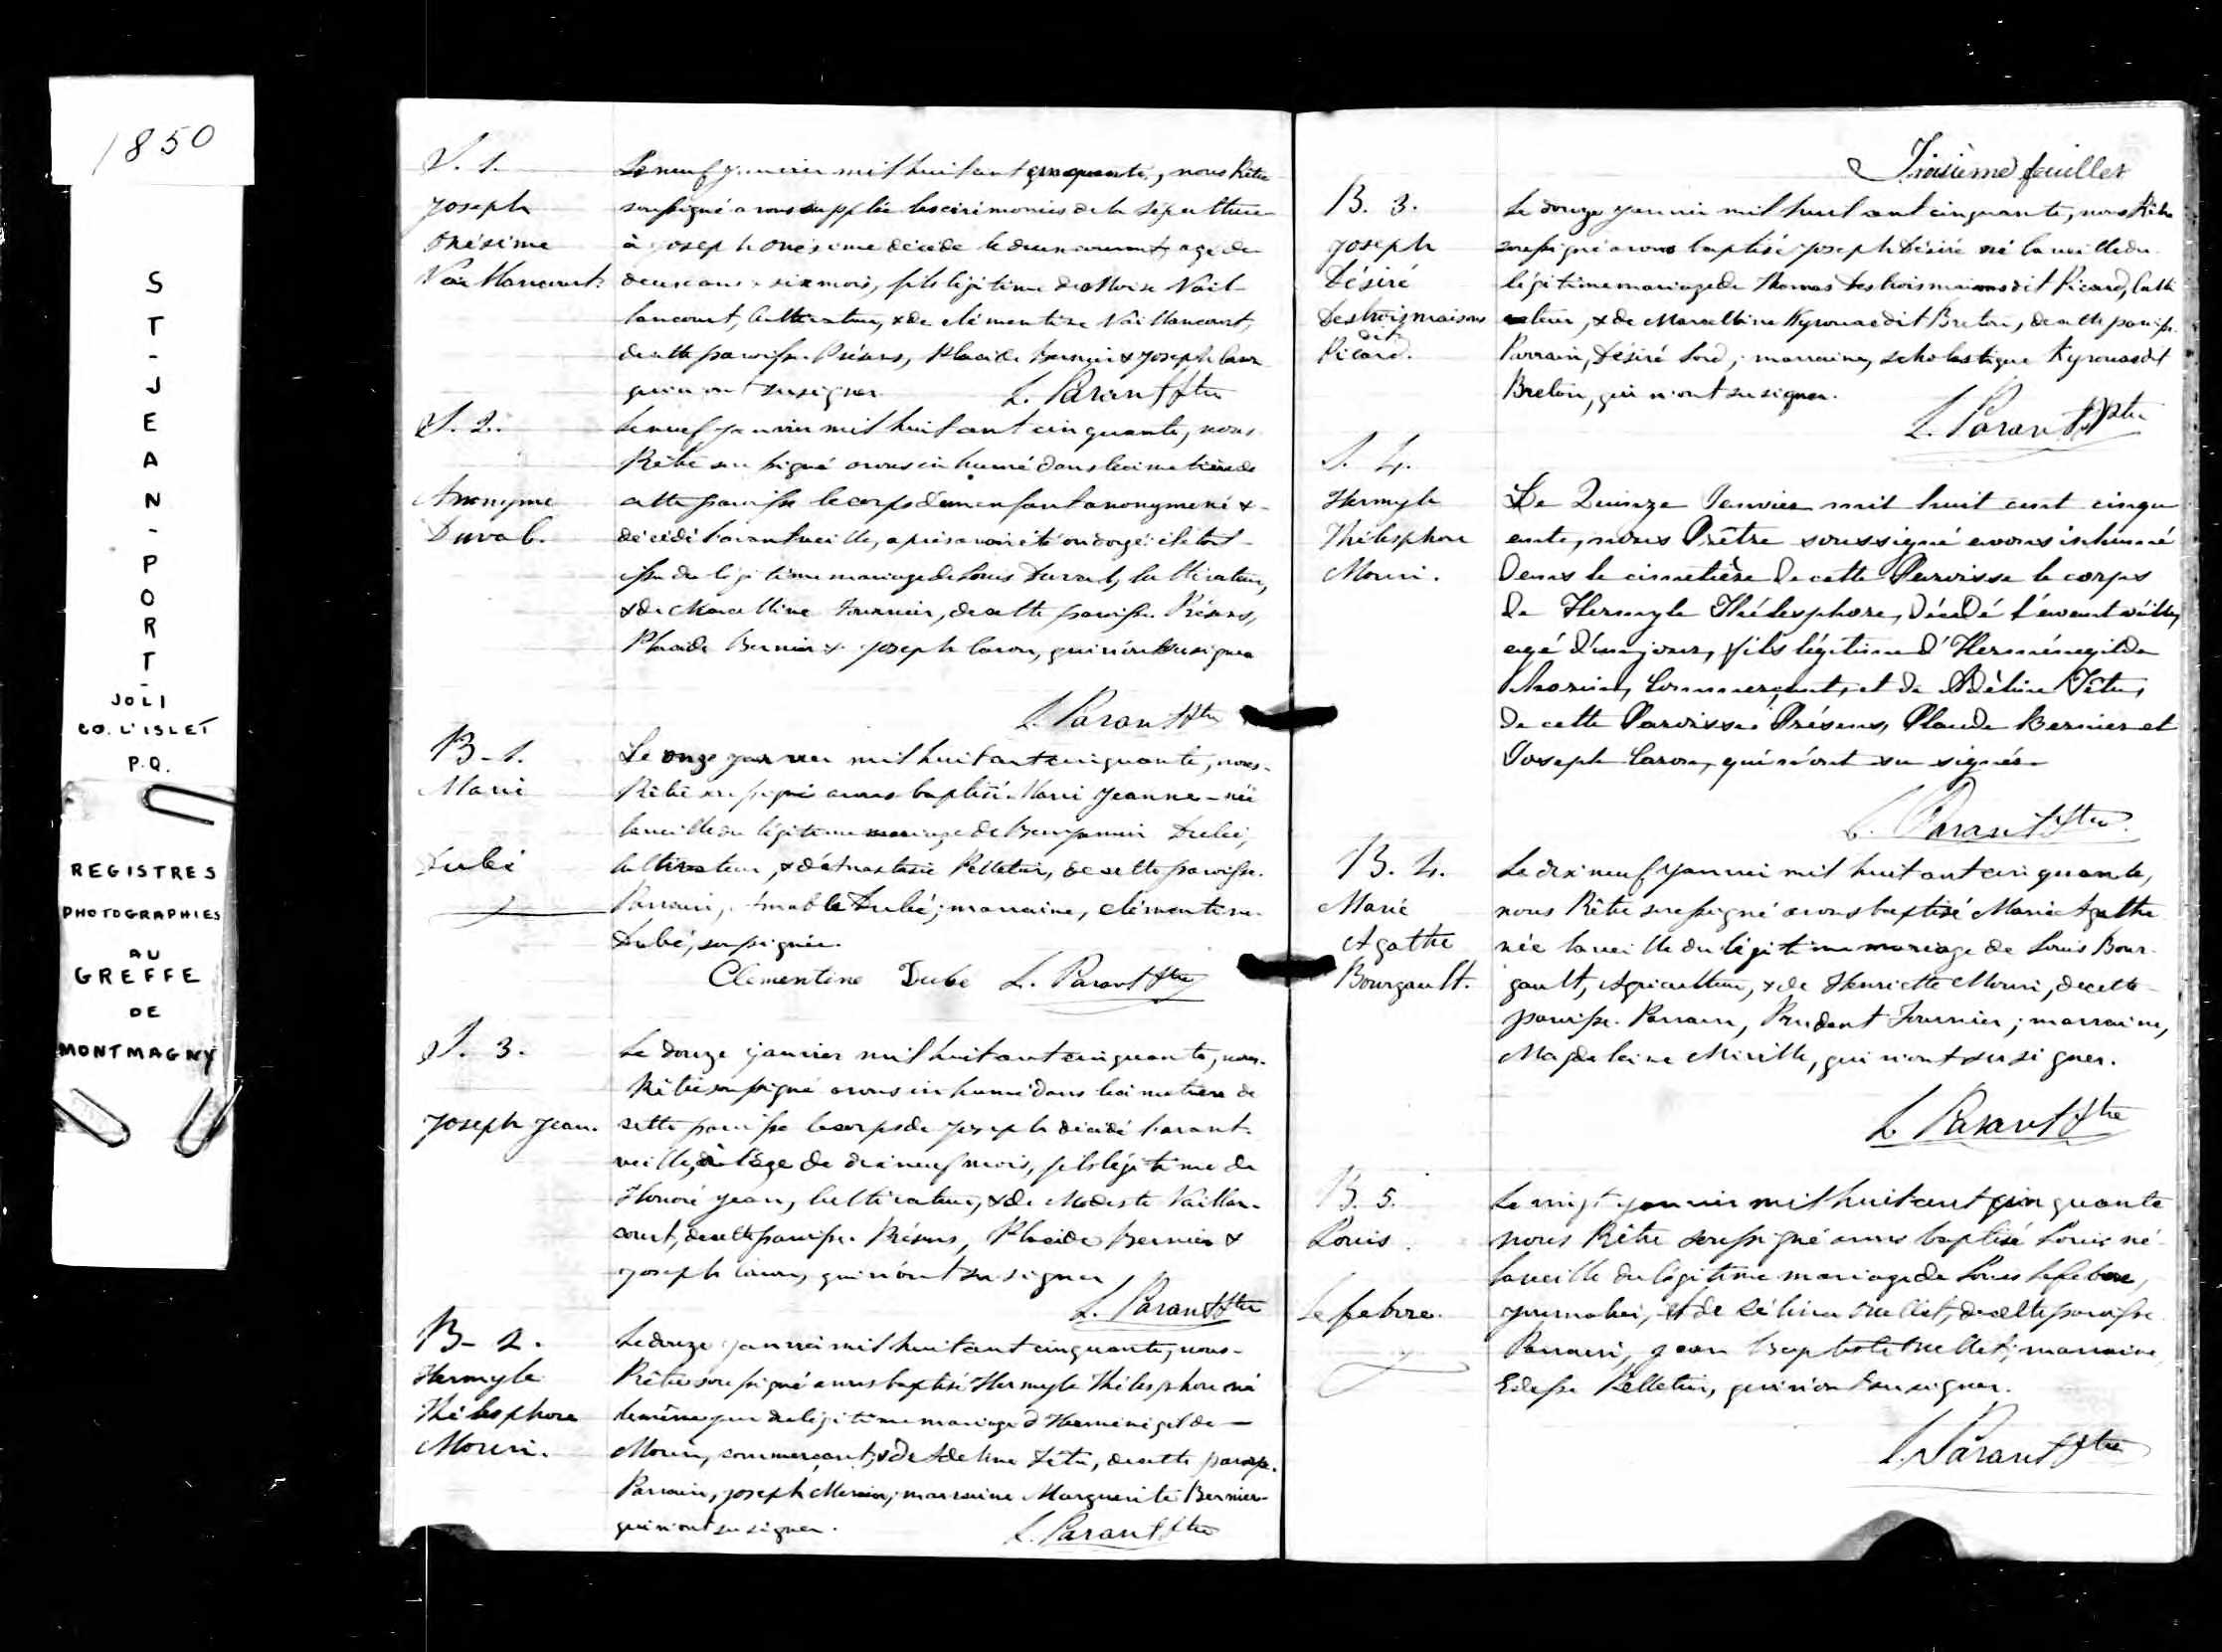 1850
ST-JEAN-PORT-
JOLI
CO. L'ISLET
P.Q.
REGISTRES
PHOTOGRAPHIES
AU
GREFFE
DE
MONTMAGNY
S. 1.
Joseph
Onésime
Vaillancourt.
Le neuf janvier mil huit cent cinquante, nous Prêtre
soussigné avons suppléé les cérémonies de la sépulture
à Joseph Onésime décédé le deux courant, agé de
deux ans & six mois, fils légitime de Moïse Vail-
lancourt, Cultivateur, & de Clémentine Vaillancourt,
de cette paroisse. Présens, Placide Bernier & Joseph Caron
qui n'ont su signer.
L. Parant Ptre
S. 2.
Anonyme
Duval.
Le neuf janvier mil huit cent cinquante, nous
Prêtre soussigné avons inhumé dans le cimetière de
cette paroisse le corps d'un enfant anonyme né &
décédé l'avant veille, après avoir été ondoyé: il étoit
issu du légitime mariage de Louis Duval, Cultivateur,
& de Marcelline Fournier, de cette paroisse. Présens,
Placide Bernier & Joseph Caron, qui n'ont su signer
L. Parant Ptre
B-1.
Marie
Dubé
Le onze janvier mil huit cent cinquante, nous
Prêtre soussigné avons baptisé Marie Jeanne née
la veille du légitime mariage de Benjamin Dubé,
Cultivateur, & d'Anastasie Pelletier, de cette paroisse.
Parrain, Amable Dubé; marraine, Clémentine
Dubé, soussignée.
Clementine Dube L. Parant Ptre
S. 3.
Joseph Jean.
Le douze janvier mil huit cent cinquante, nous
Prêtre soussigné avons inhumé dans le cimetière de
cette paroisse le corps de Joseph décédé l'avant
veille, à l'âge de dix neuf mois, fils légitime de
Honoré Jean, Cultivateur, & de Modeste Vaillan-
court, de cette paroisse. Présens, Placide Bernier &
Joseph Caron, qui n'ont su signer
L. Parant Ptre
B-2.
Hermyle
Thélesphore
Morin.
Le douze janvier mil huit cent cinquante, nous
Prêtre soussigné avons baptisé Hermyle Thélesphore né
le même jour du légitime mariage d'Herménégilde
Morin, commerçant, & de Adeline Têtu, de cette paroisse.
Parrain, Joseph Morin; marraine Marguerite Bernier
qui n'ont su signer.
L. Parant Ptre
Troisième feuillet
B. 3.
Joseph
Désiré
Destroismaisons
dit
Picard.
Le douze janvier mil huit cent cinquante, nous Prêtre
soussigné avons baptisé Joseph Désiré né la veille du
légitime mariage de Thomas Destroismaisons dit Picard, Culti
vateur, & de Marcelline Kyrouac dit Breton, de cette paroisse.
Parrain, Désiré Lord; marraine, Scholastique Kyrouac dit
Breton, qui n'ont su signer.
L. Parant Ptre
S. 4.
Hermyle
Thélesphore
Morin.
Le Quinze Janvier mil huit cent cinqu
ante, nous Prêtre soussigné avons inhumé
dans le cimetière de cette Paroisse le corps
de Hermyle Thélesphore, décédé l'avant veille,
agé d'un jour, fils légitime d'Herménégilde
Morin, Commerçant, et de Adéline Têtu,
de cette Paroisse. Présens, Placide Bernier et
Joseph Caron, qui n'ont su signer.
L. Parant Ptre
B. 4.
Marie
Agathe
Bourgault.
Le dix neuf janvier mil huit cent cinquante,
nous Prêtre soussigné avons baptisé Marie Agathe
née la veille du légitime mariage de Louis Bour-
gault, Agriculteur, & de Henriette Morin, de cette
paroisse. Parrain, Prudent Fournier; marraine,
Magdeleine Miville, qui n'ont su signer.
L. Parant Ptre
B. 5.
Louis
Lefebvre.
Le vingt janvier mil huit cent cinquante
nous Prêtre soussigné avons baptisé Louis né
la veille du légitime mariage de Louis Lefebvre,
journalier, et de Célina Ouellet, de cette paroisse
Parrain, Jean Baptiste Ouellet; marraine,
Edesse Pelletier, qui n'ont su signer.
L. Parant Ptre